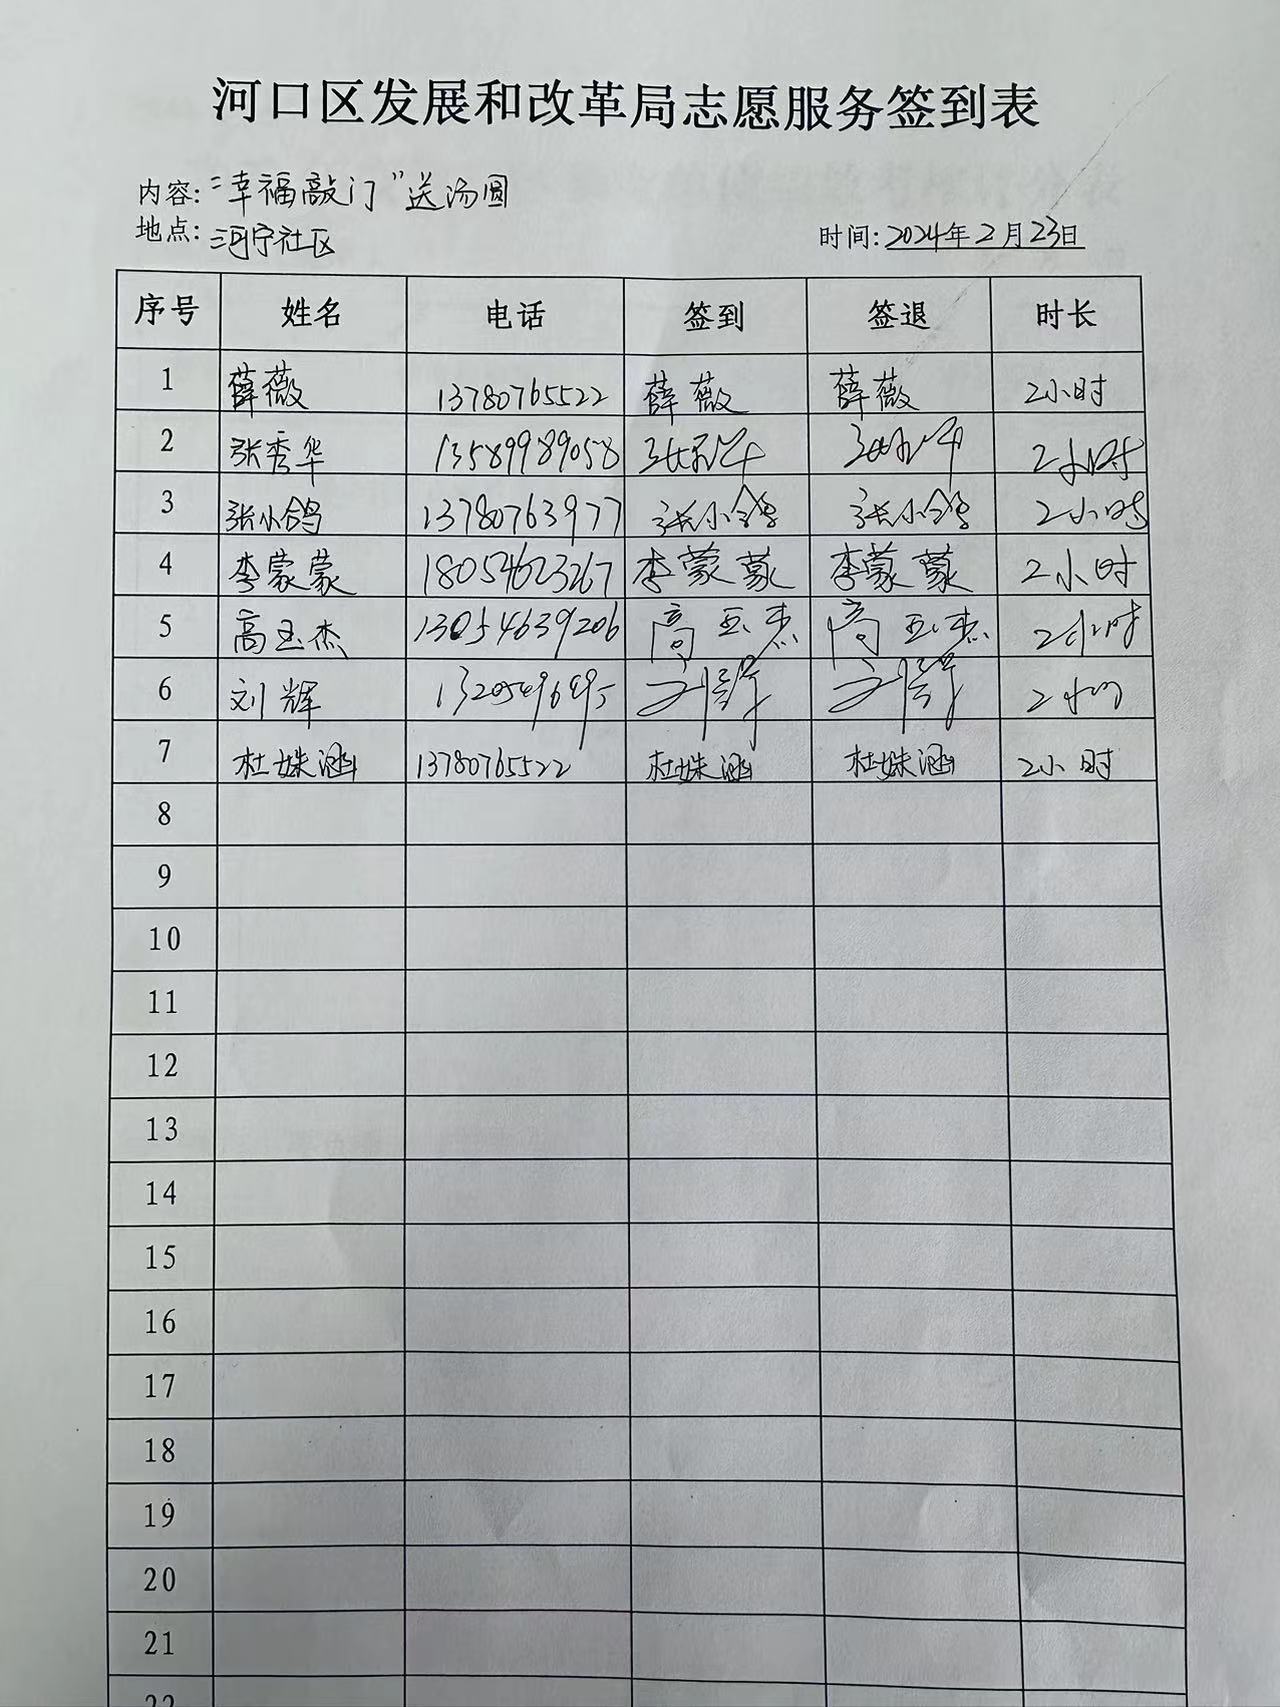 河口区发展和改革局志愿服务签到表
内容:“幸福敲门”送汤圆
地点:河宁社区 时间:2024年2月23日
序号 姓名 电话 签到 签退 时长
1 薛薇 13780765522 薛薇 薛薇 2小时
2 张秀华 13589989058 张秀华 张秀华 2小时
3 张小鸽 13780763977 张小鸽 张小鸽 2小时
4 李蒙蒙 18054623267 李蒙蒙 李蒙蒙 2小时
5 高玉杰 13054639206 高玉杰 高玉杰 2小时
6 刘辉 刘辉 刘辉 2小时
7 杜姝涵 13780765522 杜姝涵 杜姝涵 2小时
8
9
10
11
12
13
14
15
16
17
18
19
20
21
22